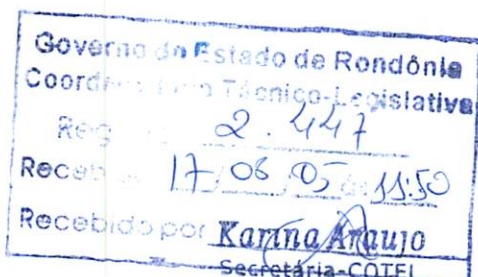 Governo do Estado de Rondônia
Coordenação Técnico-Legislativa
Reg 2.447
Receb 17/06/05 às 11:50
Recebido por Karina Araujo
Secretária-COTEL